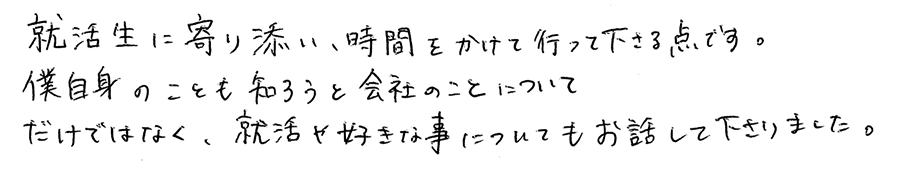 就活生に寄り添い、時間をかけて行って下さる点です。
僕自身のことも知ろうと会社のことについて
だけではなく、就活や好きな事についてもお話して下さりました。